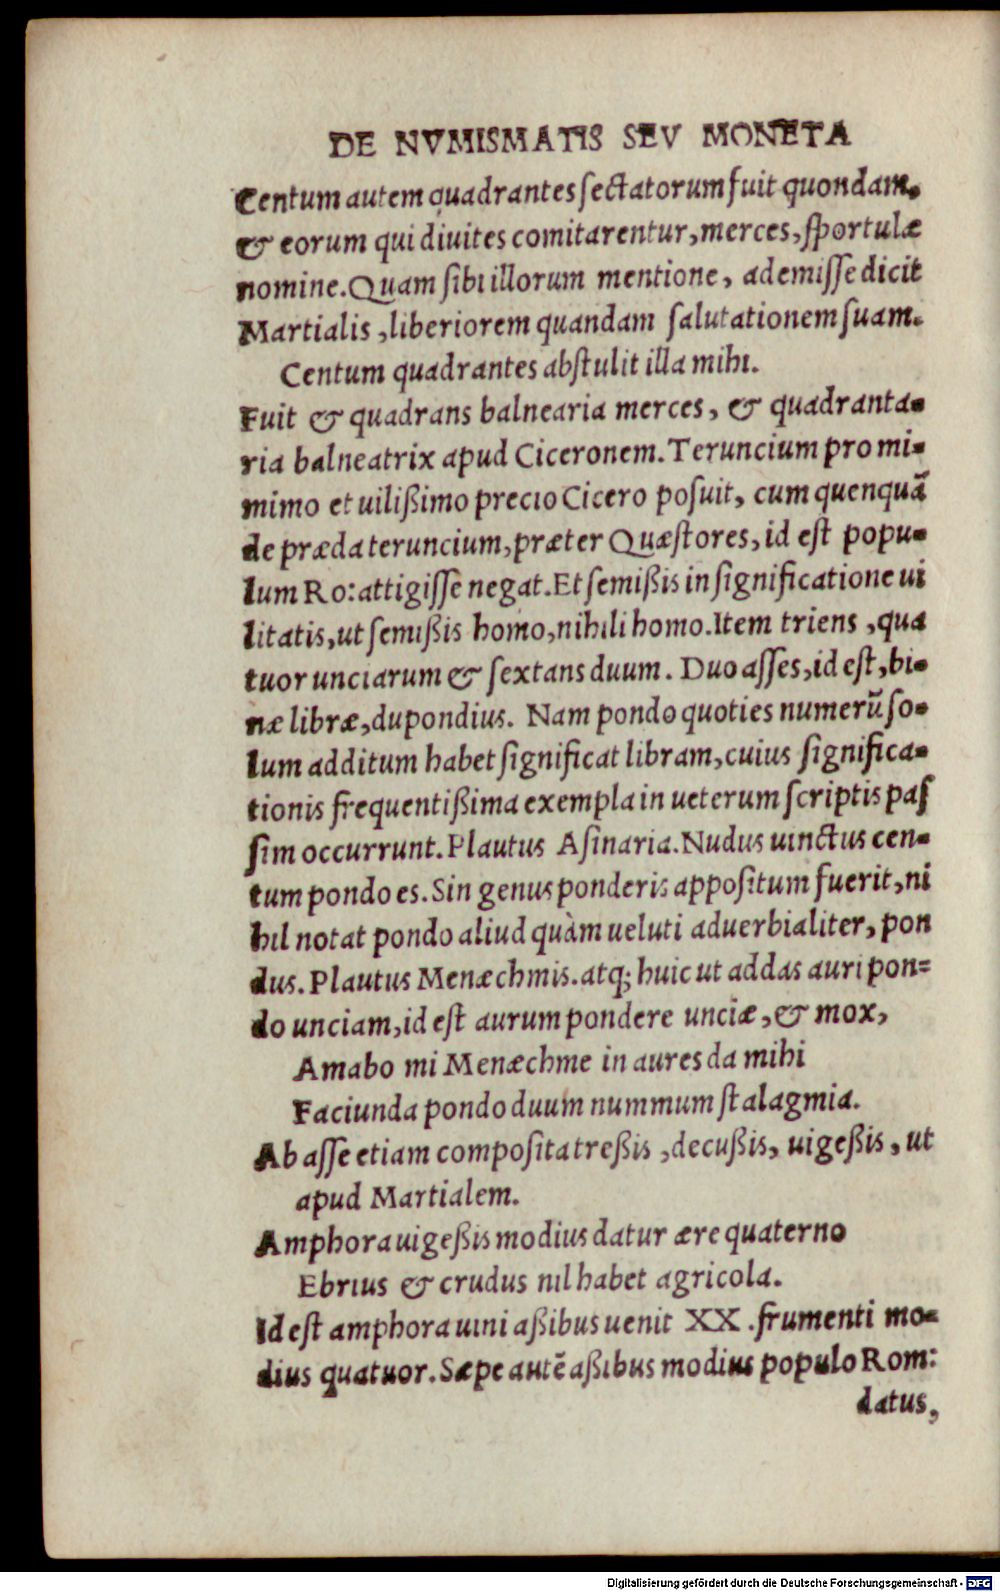 DE NVMISMATIS SEV MONETA
Centum autem quadrantes ſectatorum fuit quondam,
& eorum qui diuites comitarentur, merces, ſportulæ
nomine. Quam ſibi illorum mentione, ademiſſe dicit
Martialis, liberiorem quandam ſalutationem ſuam.
Centum quadrantes abſtulit illa mihi.
Fuit & quadrans balnearia merces, & quadranta-
ria balneatrix apud Ciceronem. Teruncium pro mi-
mimo et uilißimo precio Cicero poſuit, cum quenquã
de præda teruncium, præter Quæſtores, id eſt popu-
lum Ro: attigiſſe negat. Et ſemißis in ſignificatione ui
litatis, ut ſemißis homo, nihili homo. Item triens, qua
tuor unciarum & ſextans duum. Duo aſſes, id eſt, bi-
næ libræ, dupondius. Nam pondo quoties numerũ ſo-
lum additum habet ſignificat libram, cuius ſignifica-
tionis frequentißima exempla in ueterum ſcriptis paſ
ſim occurrunt. Plautus Aſinaria. Nudus uinctus cen-
tum pondo es. Sin genus ponderis appoſitum fuerit, ni
hil notat pondo aliud quàm ueluti aduerbialiter, pon
dus. Plautus Menæchmis. atq; huic ut addas auri pon-
do unciam, id eſt aurum pondere unciæ, & mox,
Amabo mi Menæchme in aures da mihi
Faciunda pondo duum nummum ſtalagmia.
Ab aſſe etiam compoſita treßis, decußis, uigeßis, ut
apud Martialem.
Amphora uigeßis modius datur ære quaterno
Ebrius & crudus nil habet agricola.
Id eſt amphora uini aßibus uenit XX. frumenti mo-
dius quatuor. Sæpe autẽ aßibus modius populo Rom:
datus,
Digitalisierung gefördert durch die Deutsche Forschungsgemeinschaft - DFG